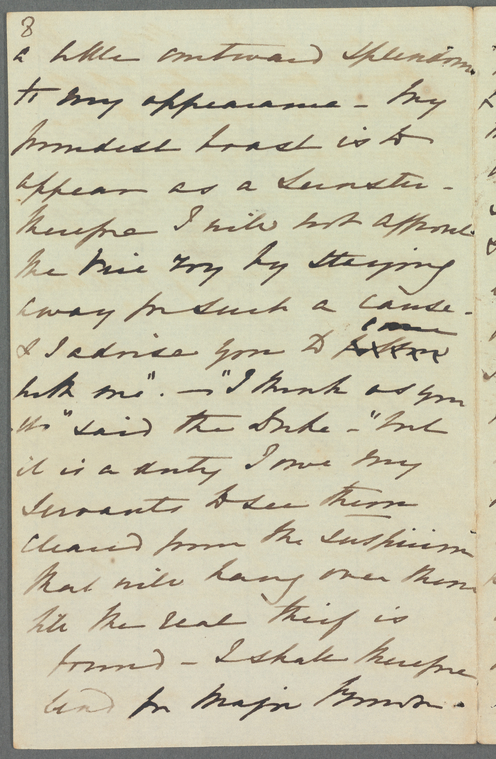 8
a little outward splendour
to my appearance - My
proudest boast is to
appear as a Leinster -
therefore I will not affront
the Vice roy by staying
away for such a cause -
& I advise you to come
with me". - "I think as you
do" said the Duke - "but
it is a duty I owe my
servants to see them
cleared from the suspicion
that will hang over them
till the real thief is
found - I shall therefore
send for Major